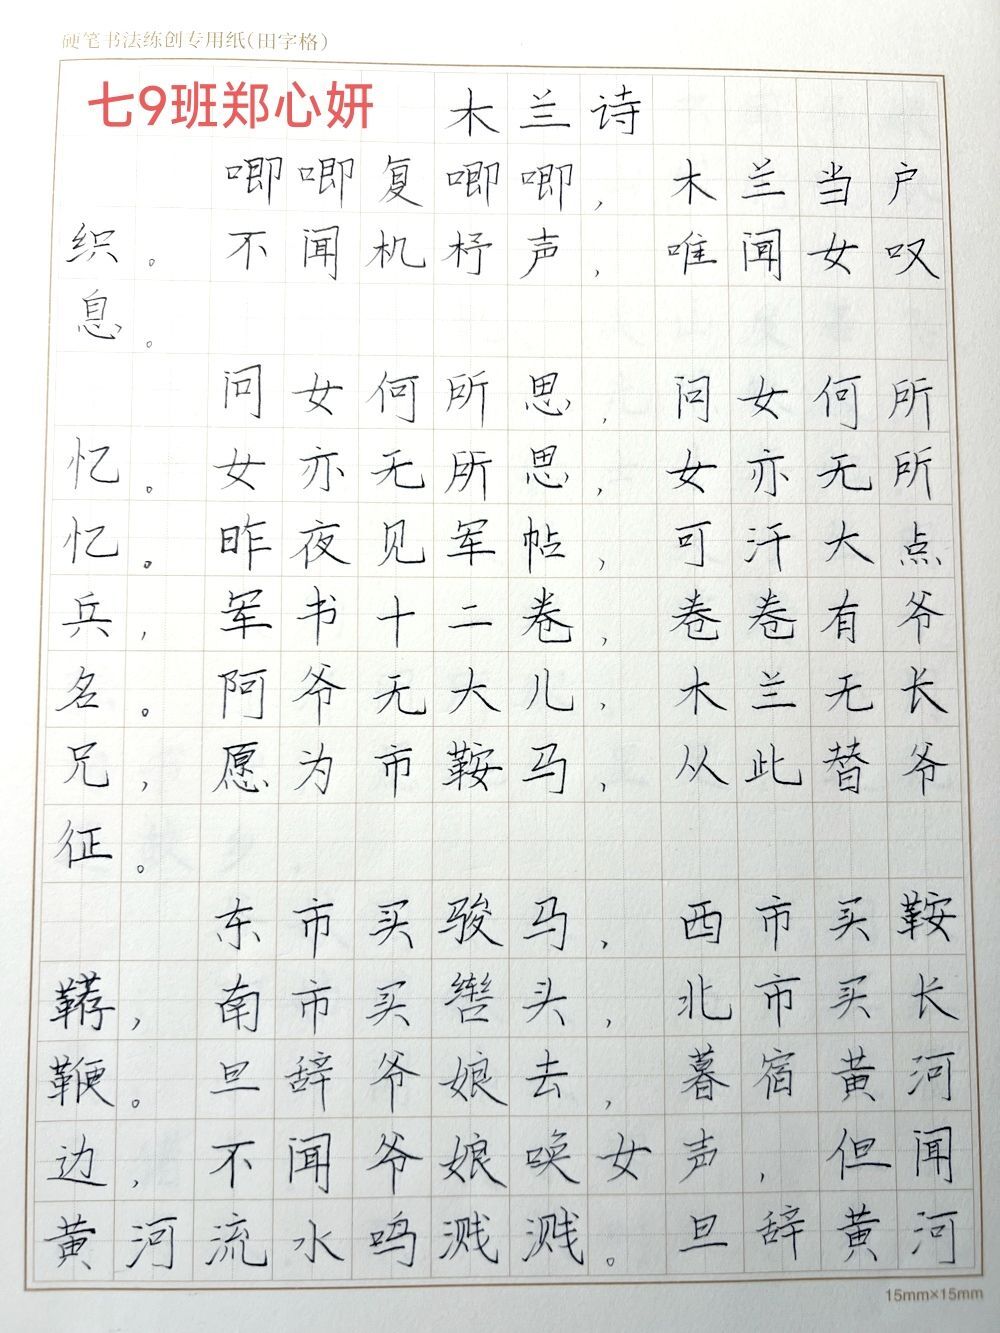 硬笔书法练创专用纸(田字格)
七9班郑心妍
木兰诗
唧唧复唧唧,木兰当户
织。不闻机杼声,唯闻女叹
息。
问女何所思,问女何所
忆。女亦无所思,女亦无所
忆。昨夜见军帖,可汗大点
兵,军书十二卷,卷卷有爷
名。阿爷无大儿,木兰无长
兄,愿为市鞍马,从此替爷
征。
东市买骏马,西市买鞍
鞯,南市买辔头,北市买长
鞭。旦辞爷娘去,暮宿黄河
边,不闻爷娘唤女声,但闻
黄河流水鸣溅溅。旦辞黄河
15mm×15mm